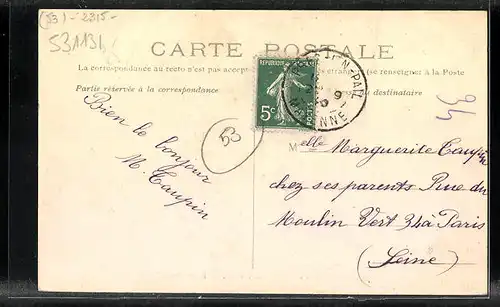 (53) - 2315 -
53113
CARTE POSTALE
La correspondance au recto n'est pas accep
étrangers (se renseigner à la Poste
Partie réservée à la correspondance
destinataire
REPUBLIQUE
5c
POSTES
MAYENNE
34
53
Bien le bonjour
M. Taupin
Melle Marguerite Taupin
chez ses parents Rue du
Moulin Vert 34 à Paris
(Seine)